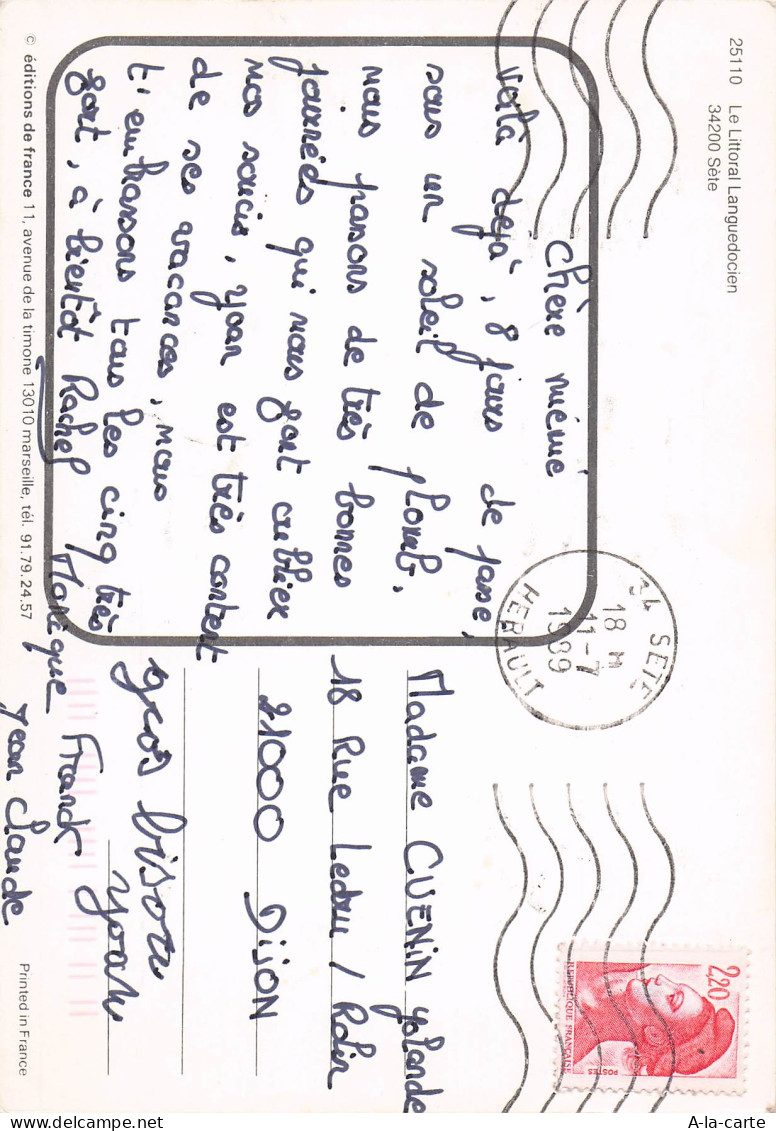 25110 Le Littoral Languedocien
34200 Sète
chère mémé
voilà dejà, 8 jours de passe,
sous un soleil de plomb.
nous passons de très bonnes
journées qui nous font oublier
nos soucis, yoan est très content
de ses vacances, nous
t'embrassons tous les cinq très
fort, à bientôt Rachel Monique Franck
Jean Claude
gros bisou
yoan
34 SETE
18 H
11-7
1989
HERAULT
2,20
REPUBLIQUE FRANÇAISE
POSTES
Madame GUENIN yolande
18 Rue Ledru / Rolin
21000 DiJON
© éditions de france 11, avenue de la timone 13010 marseille, tél. 91.79.24.57
Printed in France
A-la-carte